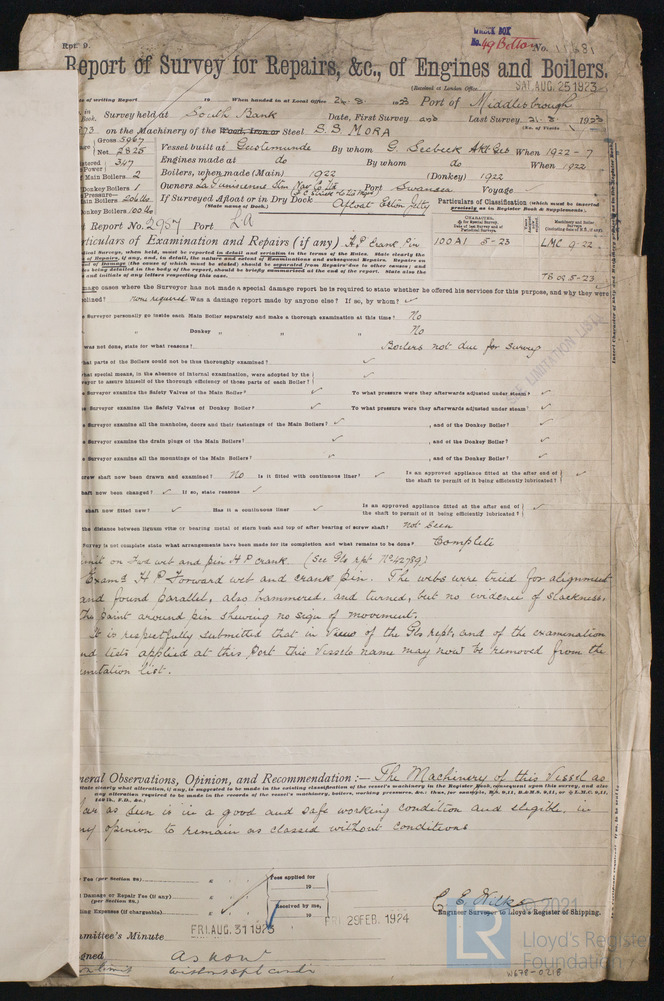 Rpt. 9.
WRECK BOX
No. 49 Bottom
No.
Report of Survey for Repairs, &c., of Engines and Boilers.
(Received at London Office SAT. AUG. 25 1923
of writing Report 19 When handed in at Local Office 24. 8. 1923 Port of Middlesbrough
Survey held at South Bank Date, First Survey and Last Survey 21. 8. 1923
Book. (No. of Visits 1)
on the Machinery of the Wood, Iron or Steel S.S. MORA
Gross 5967
Net 2825
Vessel built at Geestemunde By whom G. Seebeck Akt Ges When 1922 - 7
Engines made at do By whom do When 1922
347
Main Boilers 2
Boilers, when made (Main) 1922 (Donkey) 1922
Donkey Boilers 1
Owners Port Swansea Voyage
Pressure—
Main Boilers
Donkey Boilers 100 lbs
If Surveyed Afloat or in Dry Dock Afloat Eston Jetty
(State name of Dock.)
Particulars of Classification (which must be inserted
precisely as in Register Book & Supplements).
Report No. 2957 Port LA
Particulars of Examination and Repairs (if any) H.P. Crank Pin
100 A1 5-23
LMC 9-22
TS 5-23
mage cases where the Surveyor has not made a special damage report he is required to state whether he offered his services for this purpose, and why they were
clined? none required Was a damage report made by anyone else? If so, by whom? ✓
Surveyor personally go inside each Main Boiler separately and make a thorough examination at this time? No
" Donkey " " " No
was not done, state for what reasons? Boilers not due for survey
hat parts of the Boilers could not be thus thoroughly examined? ✓
hat special means, in the absence of internal examination, were adopted by the
veyor to assure himself of the thorough efficiency of those parts of each Boiler? ✓
Surveyor examine the Safety Valves of the Main Boiler? ✓ To what pressure were they afterwards adjusted under steam? ✓
Surveyor examine the Safety Valves of Donkey Boiler? ✓ To what pressure were they afterwards adjusted under steam? ✓
Surveyor examine all the manholes, doors and their fastenings of the Main Boilers? ✓ , and of the Donkey Boiler? ✓
Surveyor examine the drain plugs of the Main Boilers? ✓ , and of the Donkey Boiler? ✓
Surveyor examine all the mountings of the Main Boilers? ✓ , and of the Donkey Boiler? ✓
crew shaft now been drawn and examined? No Is it fitted with continuous liner? ✓ Is an approved appliance fitted at the after end of
the shaft to permit of it being efficiently lubricated? ✓
haft now been changed? ✓ If so, state reasons ✓
shaft now fitted new? ✓ Has it a continuous liner ✓ Is an approved appliance fitted at the after end of
the shaft to permit of it being efficiently lubricated? ✓
the distance between lignum vitæ or bearing metal of stern bush and top of after bearing of screw shaft? Not Seen
Survey is not complete state what arrangements have been made for its completion and what remains to be done. Complete
limit on Fwd web and pin H P crank. (See Gls rpt No 42789)
Exam'd H P Forward web and crank pin. The webs were tried for alignment
and found parallel, also hammered, and turned, but no evidence of slackness,
the paint around pin shewing no sign of movement.
It is respectfully submitted that in view of the Gls rept. and of the examination
and tests applied at this Port this Vessels name may now be removed from the
limitation list.
neral Observations, Opinion, and Recommendation :— The Machinery of this Vessel as
far as seen is in a good and safe working condition and eligible in
my opinion to remain as classed without conditions
Fee (per Section 29.)
Fees applied for
19
Damage or Repair Fee (if any)
(per Section 29.)
lling Expenses (if chargeable)
Received by me,
19
C. E. Wilks
Engineer Surveyor to Lloyd's Register of Shipping.
mmittee's Minute FRI. AUG. 31 1923 FRI. 29 FEB. 1924
gned As now
© 2021
LR Lloyd's Register
Foundation
W678-0218